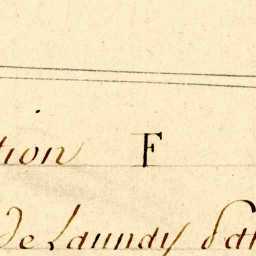 tion F
de Launay dit